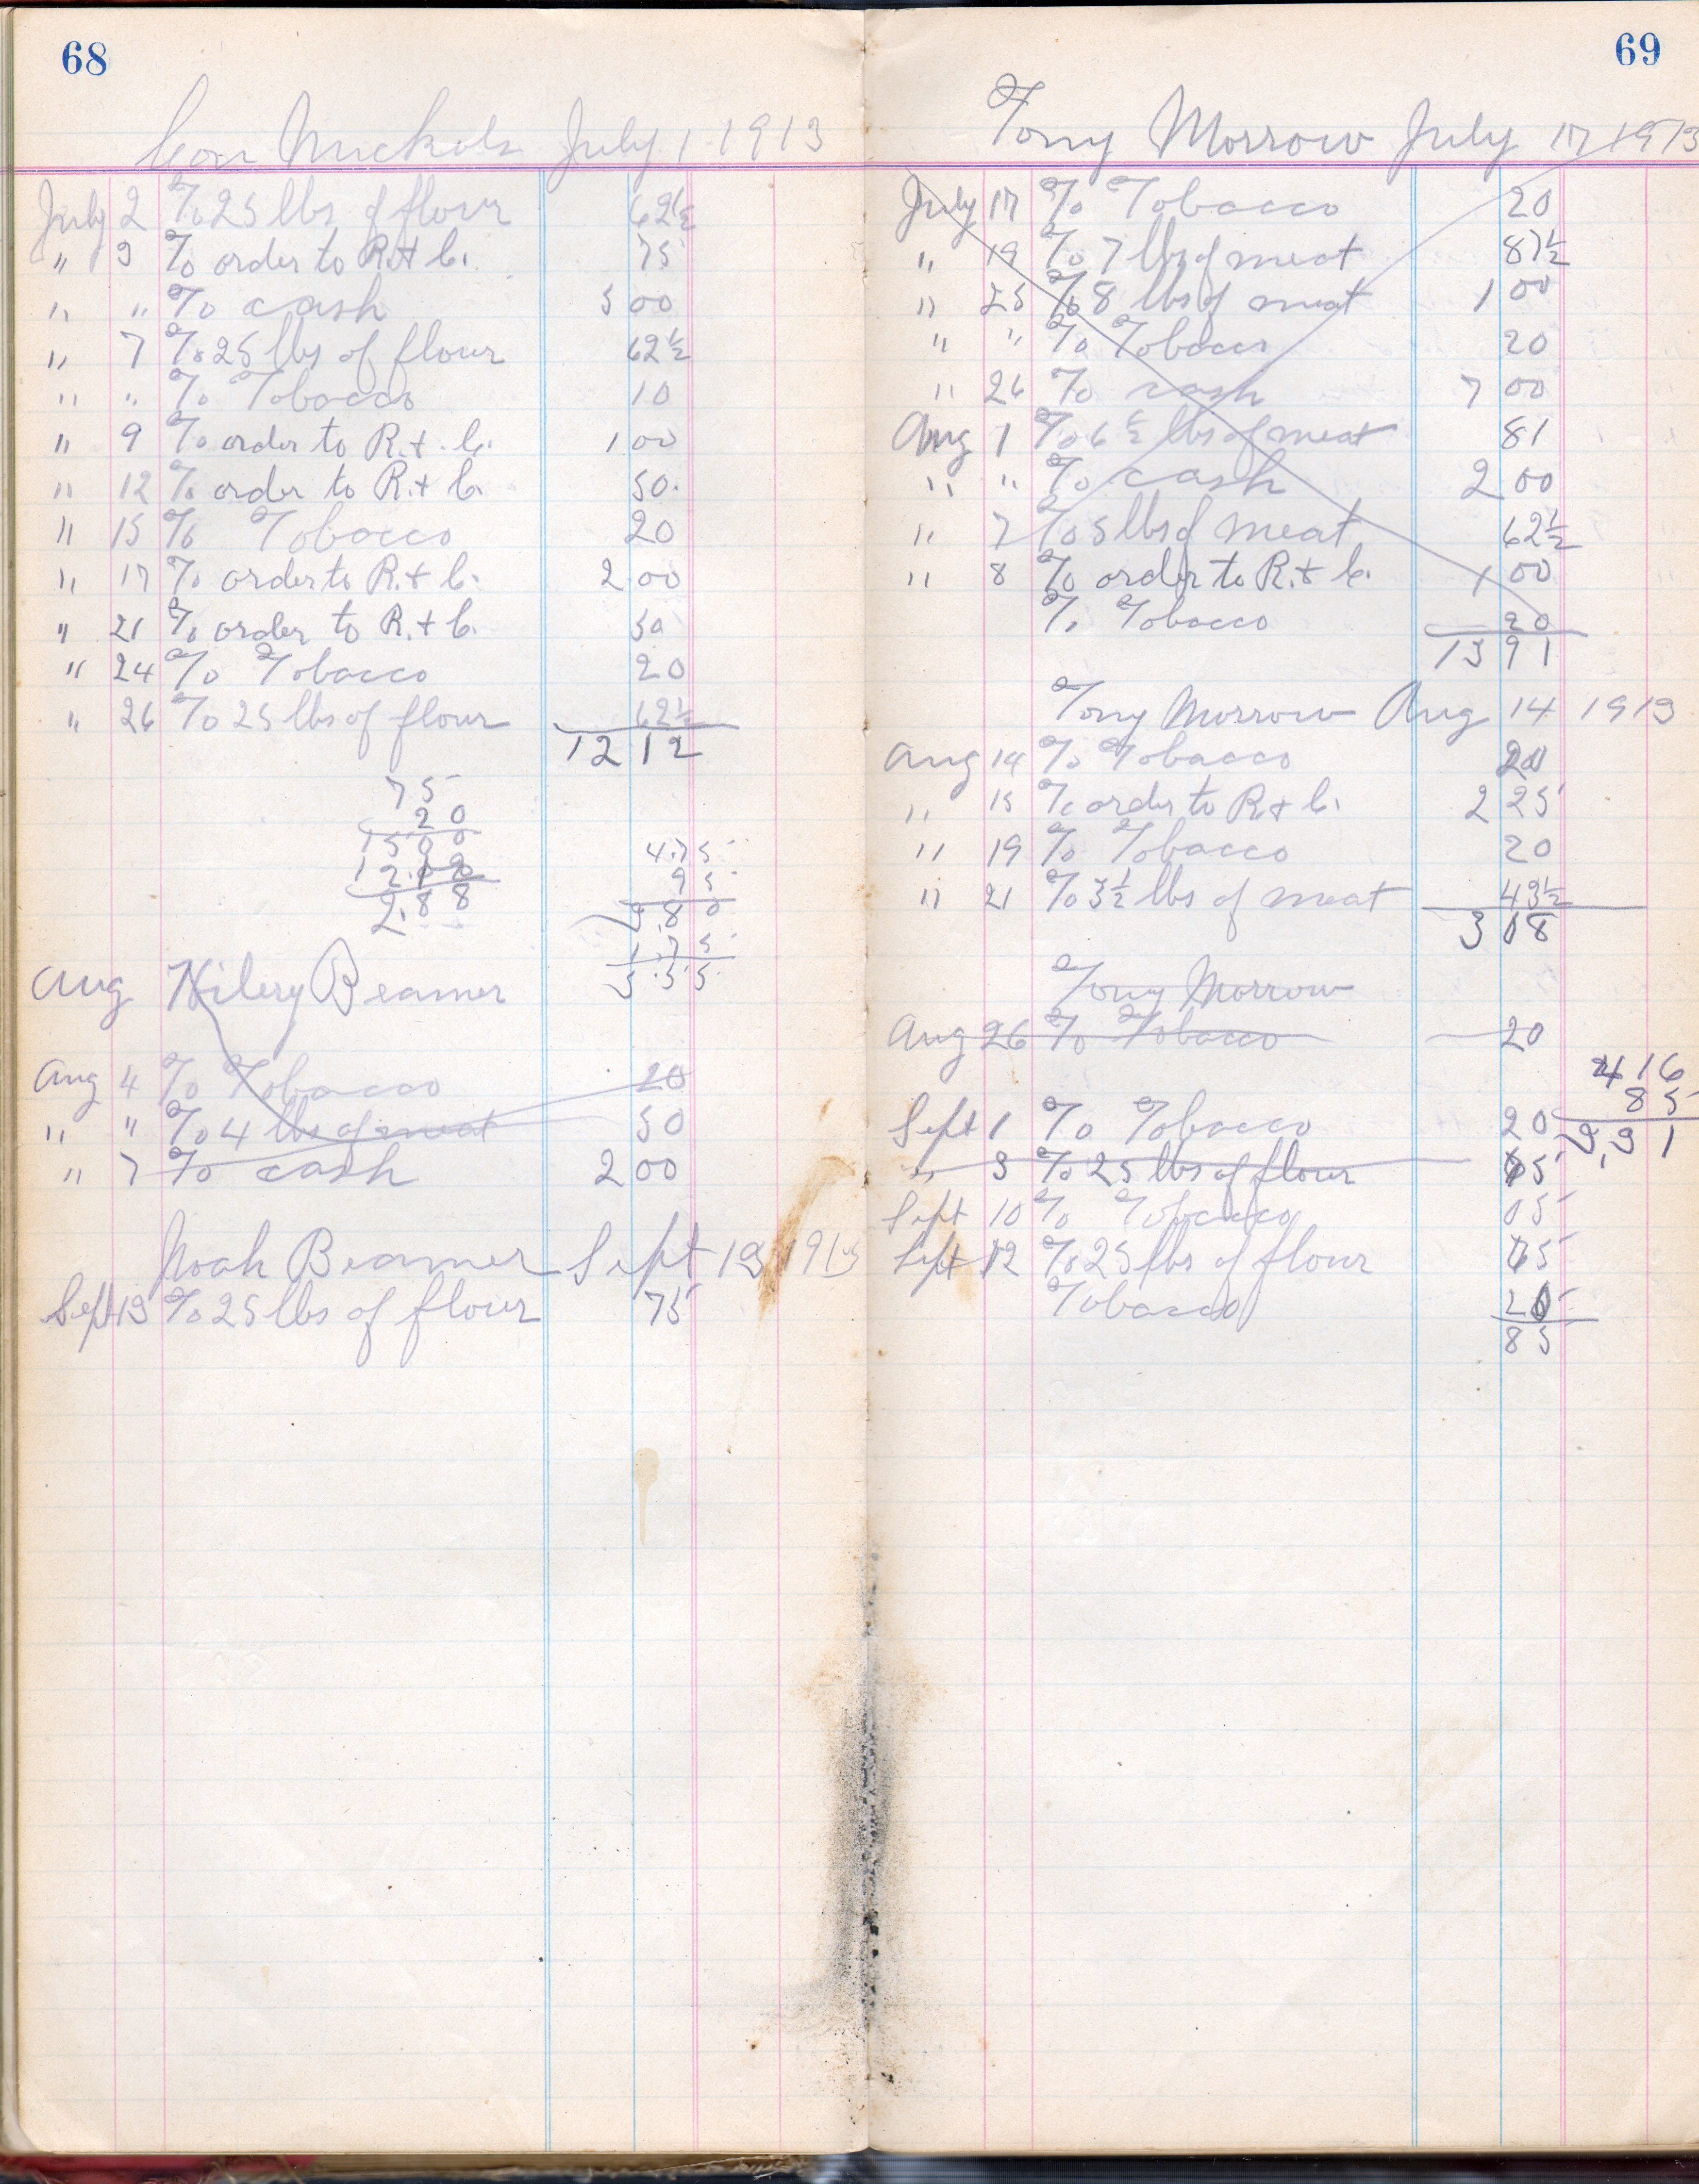 68
Con Nickols July 1 1913
July 2 % 25 lbs of flour 62½
" 3 % order to R. & C. 75
" " % cash 5 00
" 7 % 25 lbs of flour 62½
" " % Tobacco 10
" 9 % order to R. + C. 1 00
" 12 % order to R. + C. 50.
" 15 % Tobacco 20
" 17 % order to R. + C. 2 00
" 21 % order to R. + C. 50
" 24 % Tobacco 20
" 26 % 25 lbs of flour 62½
12 12
75
20
1500
12.12
2.88
4.75
95
3.80
1.75
5.55
Aug Hilery Beamer
Aug 4 % Tobacco 20
" " % 4 lbs of meat 50
" 7 % cash 2 00
Noah Beamer Sept 13 1913
Sept 13 % 25 lbs of flour 75
69
Tony Morrow July 17 1913
July 17 % Tobacco 20
" 19 % 7 lbs of meat 87½
" 25 % 8 lbs of meat 1 00
" " % Tobacco 20
" 26 % cash 7 00
Aug 1 % 6½ lbs of meat 81
" " % cash 2 00
" 7 % 5 lbs of meat 62½
" 8 % order to R. & C. 1 00
% Tobacco 20
13 91
Tony Morrow Aug 14 1913
Aug 14 % Tobacco 20
" 15 % order to R + C. 2 25
" 19 % Tobacco 20
" 21 % 3½ lbs of meat 43½
3 08
Tony Morrow
Aug 26 % Tobacco 20
416
85
3,31
Sept 1 % Tobacco 20
" 3 % 25 lbs of flour 65
Sept 10 % Tobacco 05
Sept 12 % 25 lbs of flour 65
Tobacco 20
85